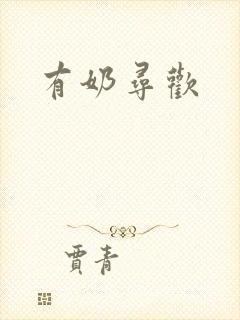 有奶尋歡
賈青